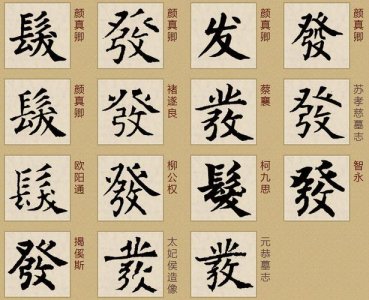 髮 颜真卿 發 颜真卿 发 颜真卿 發 颜真卿
髮 颜真卿 發 褚遂良 發 蔡襄 發 苏孝慈墓志
髮 欧阳通 發 柳公权 髮 柯九思 發 智永
發 揭傒斯 發 太妃侯造像 發 元恭墓志